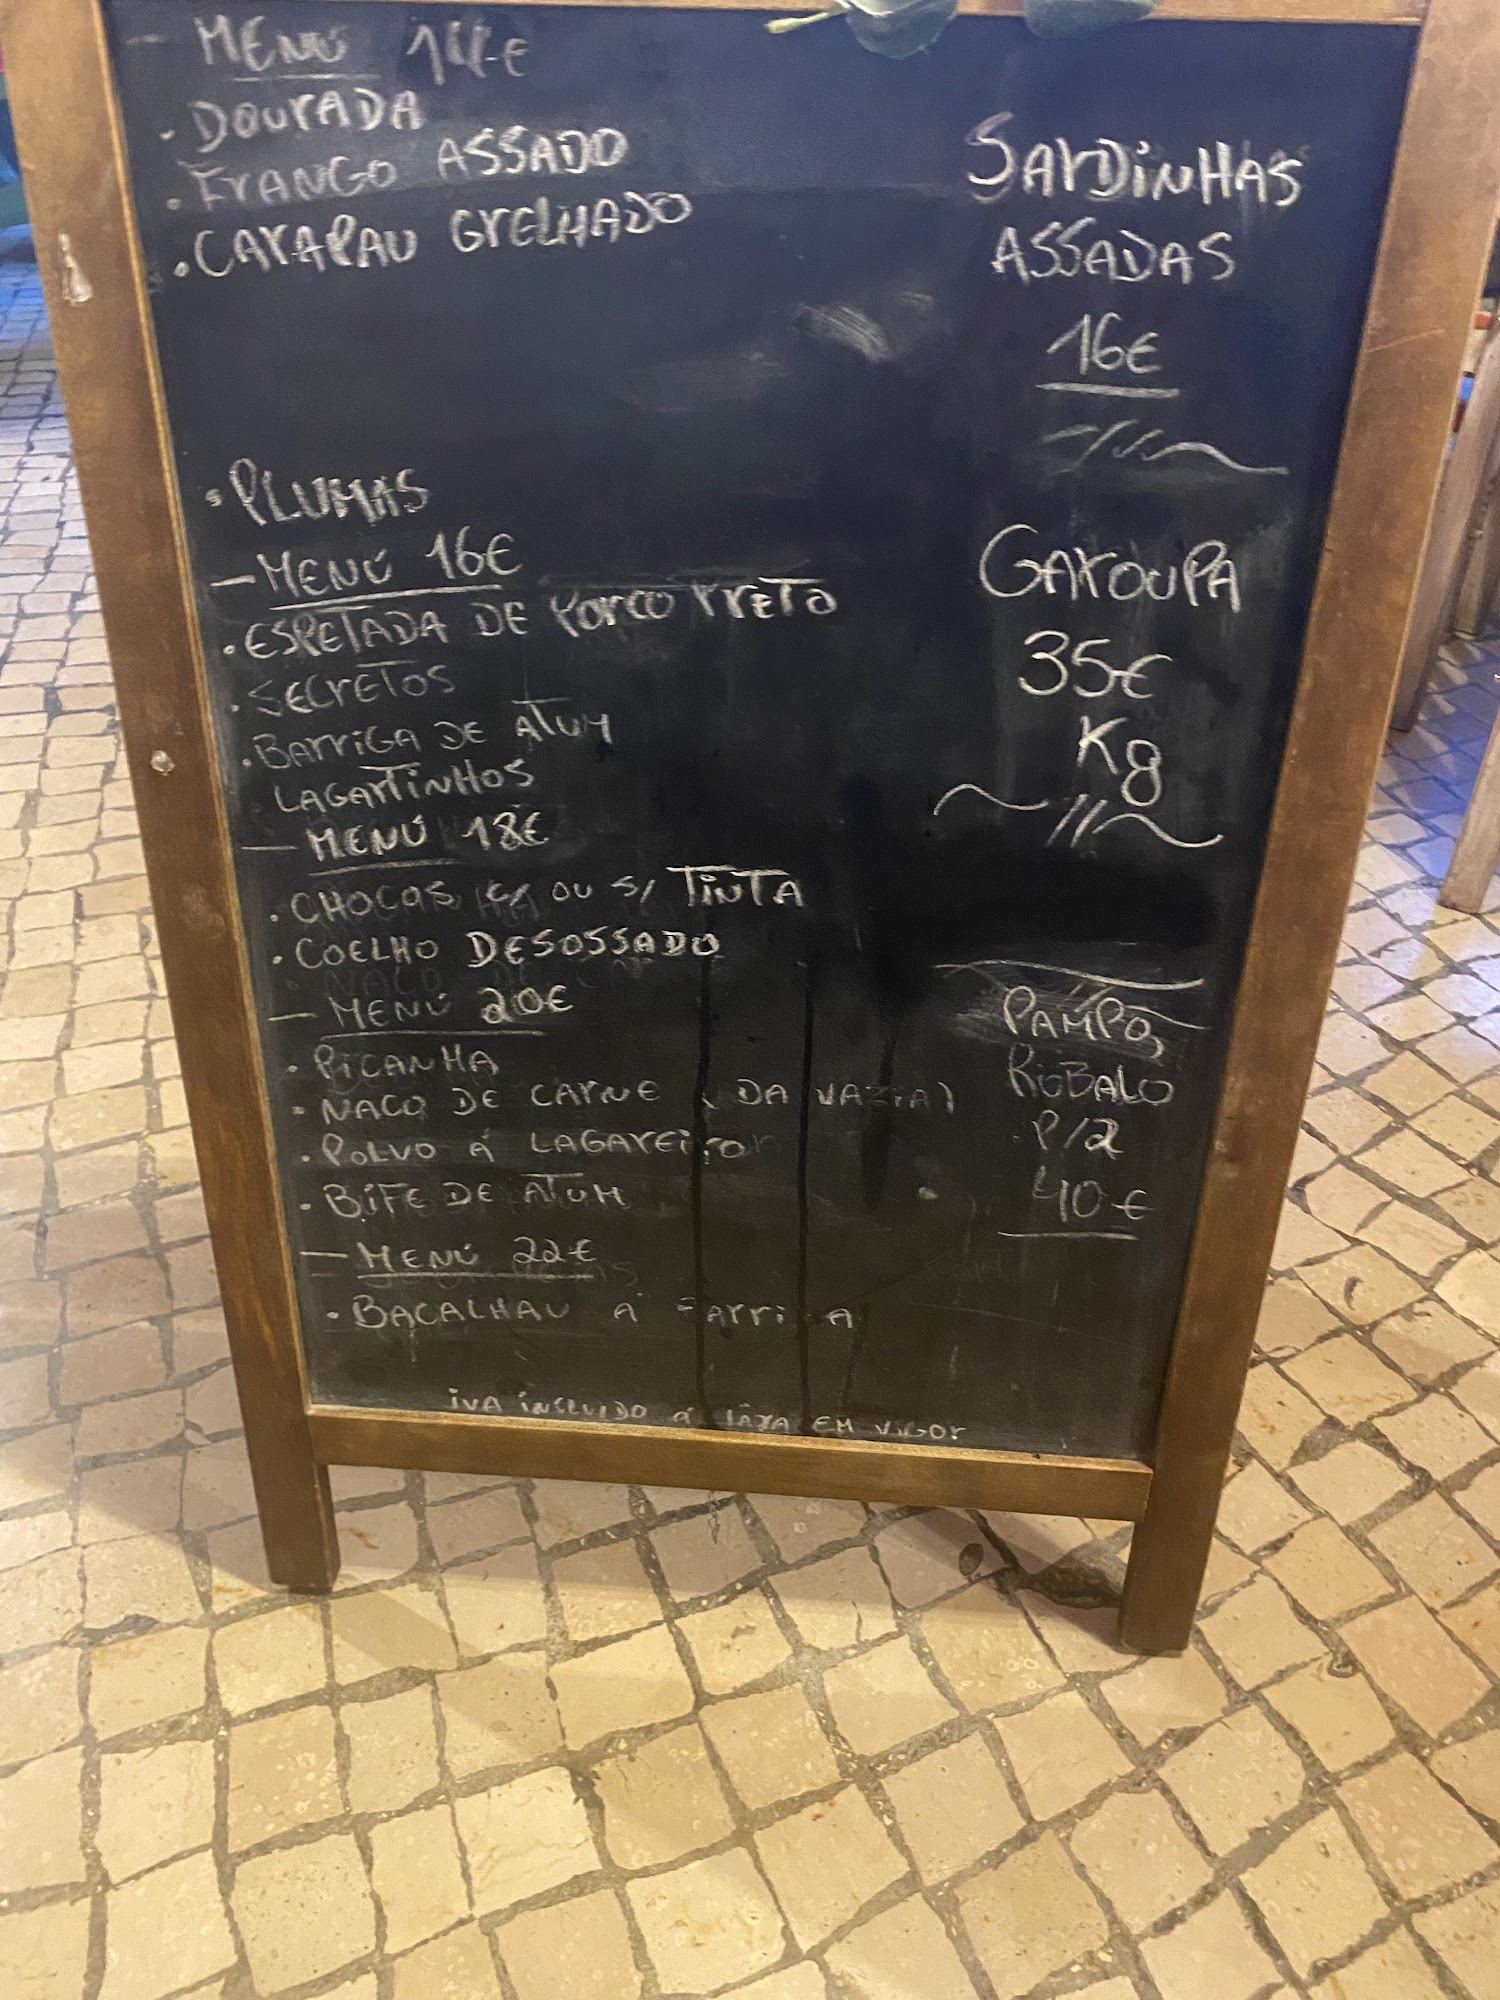 - MENÚ 14€
. DOURADA
. FRANGO ASSADO
. CARAPAU GRELHADO
. PLUMAS
- MENÚ 16€
. ESPETADA DE PORCO PRETO
. SECRETOS
. BARRIGA DE ATUM
LAGARTINHOS
- MENÚ 18€
. CHOCOS C/ OU S/ TINTA
. COELHO DESOSSADO
- MENÚ 20€
. PICANHA
. NACO DE CARNE (DA VAZIA)
. POLVO Á LAGAREIRO
. BIFE DE ATUM
- MENÚ 22€
. BACALHAU Á
IVA INCLUIDO á TAXA EM VIGOR
SARDINHAS
ASSADAS
16€
GAROUPA
35€
Kg
PAMPO,
ROBALO
P/2
40€